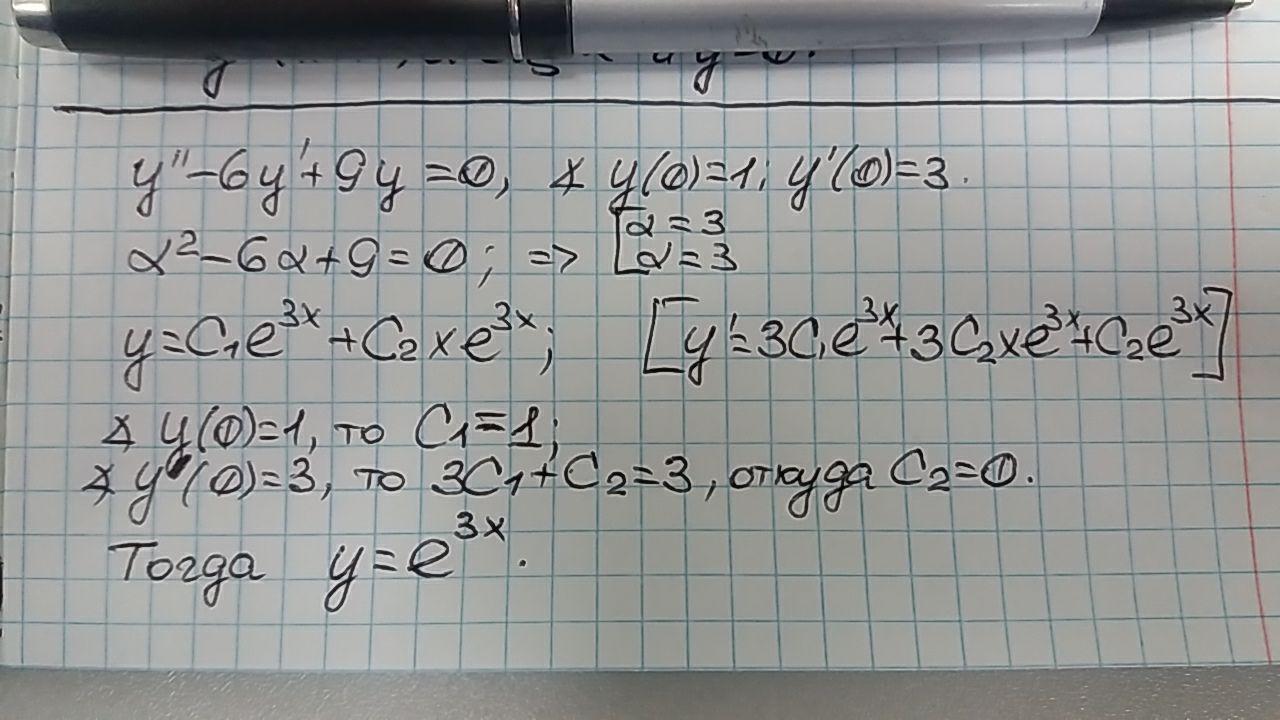 y''-6y'+9y=0, ∡ y(0)=1; y'(0)=3.
α²-6α+9=0; => [α=3 α=3
y=C₁e^{3x}+C₂xe^{3x}; [y'=3C₁e^{3x}+3C₂xe^{3x}+C₂e^{3x}]
∡ y(0)=1, то C₁=1;
∡ y'(0)=3, то 3C₁+C₂=3, откуда C₂=0.
Тогда y=e^{3x}.